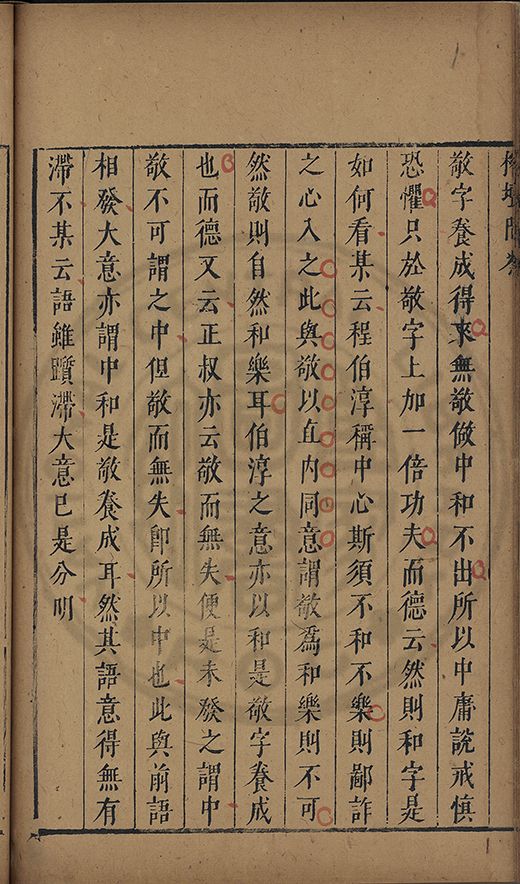 敬字養成得來無敬做中和不出所以中庸說戒慎
恐懼只於敬字上加一倍功夫而德云然則和字是
如何看某云程伯淳稱中心斯須不和不樂則鄙詐
之心入之此與敬以直內同意謂敬為和樂則不可
然敬則自然和樂耳伯淳之意亦以和是敬字養成
也而德又云正叔亦云敬而無失便是未發之謂中
敬不可謂之中但敬而無失即所以中也此與前語
相發大意亦謂中和是敬養成耳然其語意得無有
滯不某云語雖躓滯大意已是分明